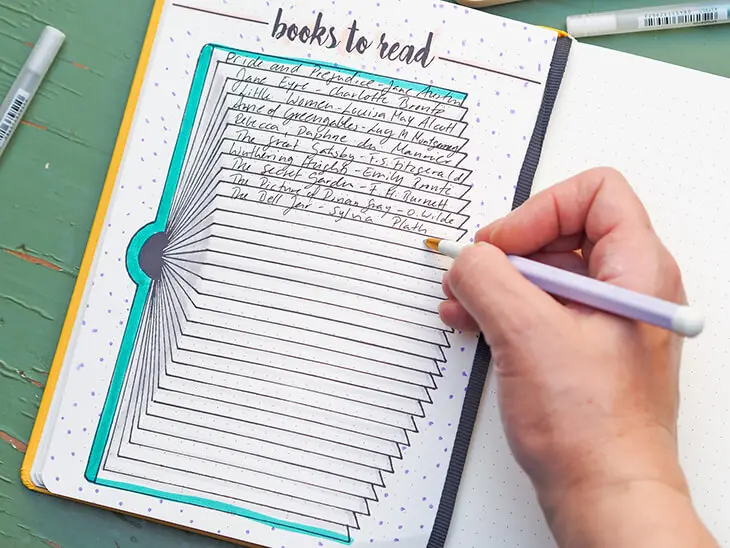 books to read
Pride and Prejudice - Jane Austin
Jane Eyre - Charlotte Bronto
Little Women - Louisa May Alcott
Anne of Greengables - Lucy M. Montgomery
Rebecca Daphne du Maurier
The great Gatsby - F.S. Fitzgerald
Wuthering Heights - Emily Bronte
The Secret Garden - F. H. Burnett
The Picture of Dorian Gray - O. Wilde
The Bell Jar - Sylvia Plath